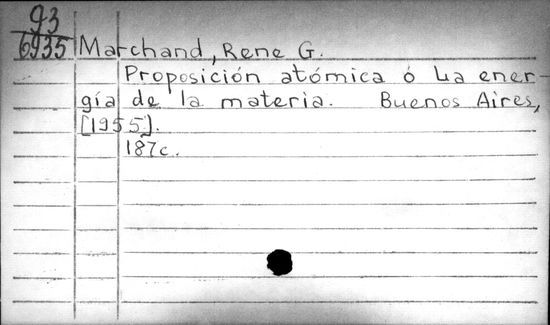 93
6935
Marchand, Rene G.
Proposición atómica ó La ener-
gía de la materia. Buenos Aires,
[1955].
187c.